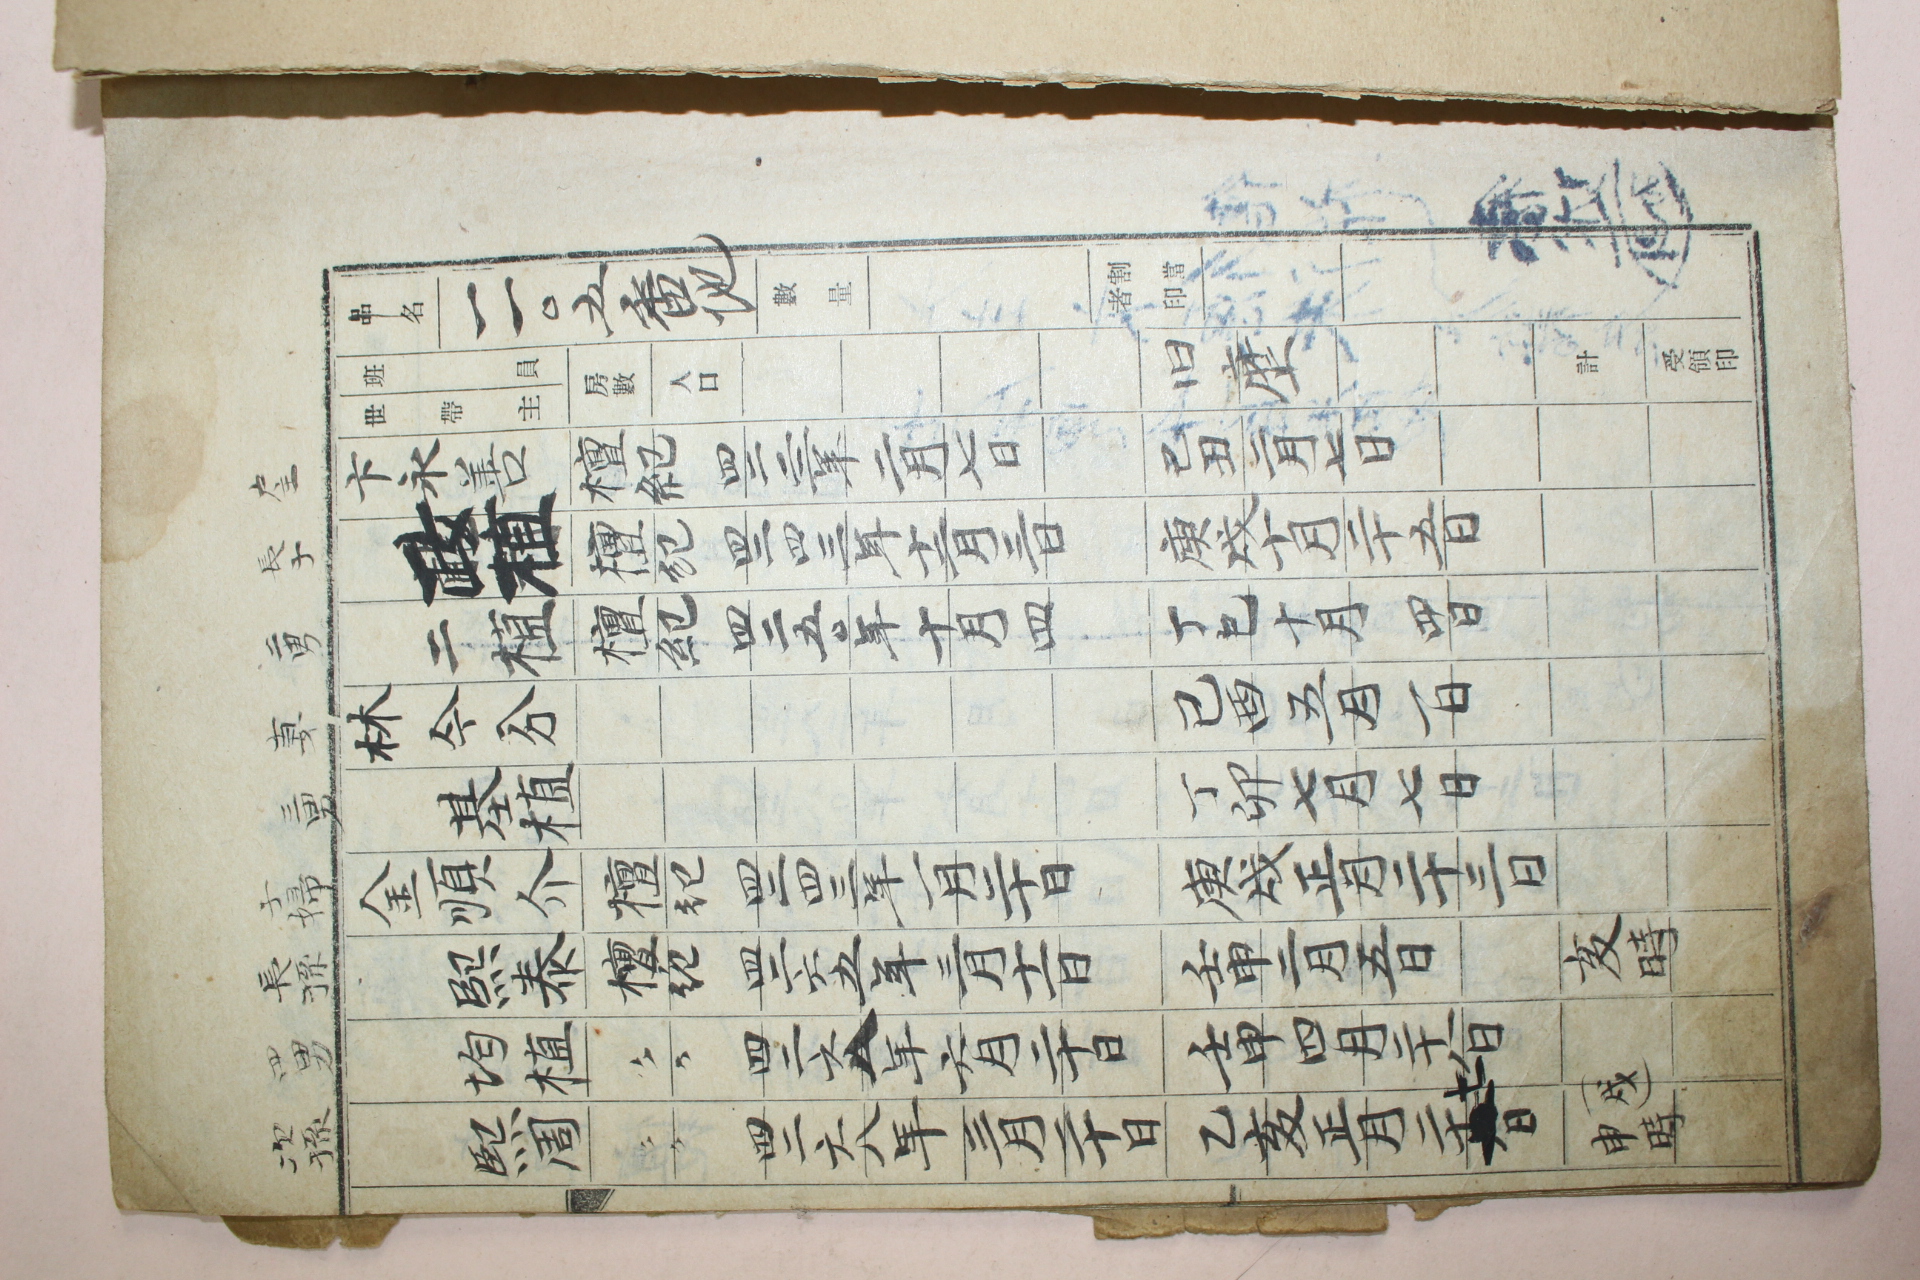 品名 一一〇五番地 數量 割當者印
班員 世帶主 房數 人口 旧 計 受領印
戶主 卞永善 檀紀 四二二二年二月七日 己丑二月七日
長子 政植 檀紀 四二四三年十二月三日 庚戌十月二十五日
二男 二植 檀紀 四二五〇年十月四 丁巳十月四日
妻 林今分 己酉五月一日
三男 基植 丁卯七月七日
子婦 金順介 檀紀 四二四三年一月二十日 庚戌正月二十三日
長孫 熙泰 檀紀 四二六五年三月十一日 壬申二月五日 亥時
四男 均植 〃〃 四二六八年六月二十日 壬申四月二十八日 (戌)
次孫 熙周 〃〃 四二六八年三月二十日 乙亥正月二十七日 申時